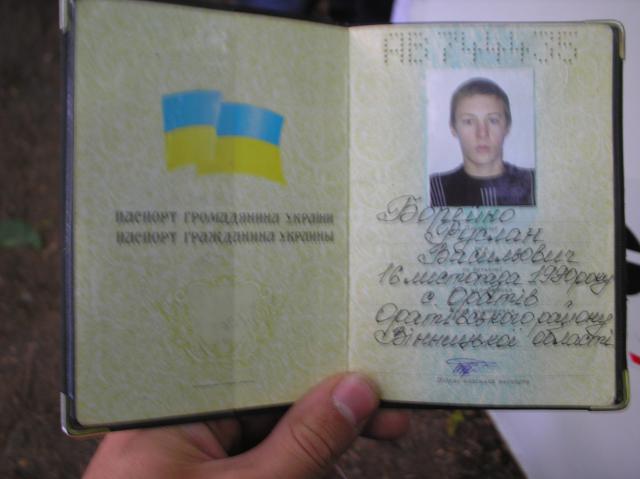 ПАСПОРТ ГРОМАДЯНИНА УКРАЇНИ
ПАСПОРТ ГРАЖДАНИНА УКРАИНЫ
АВ
Борейко
Руслан
Васильович
16 листопада 1990 року
с. Оратів
Оратівського району
Вінницької області